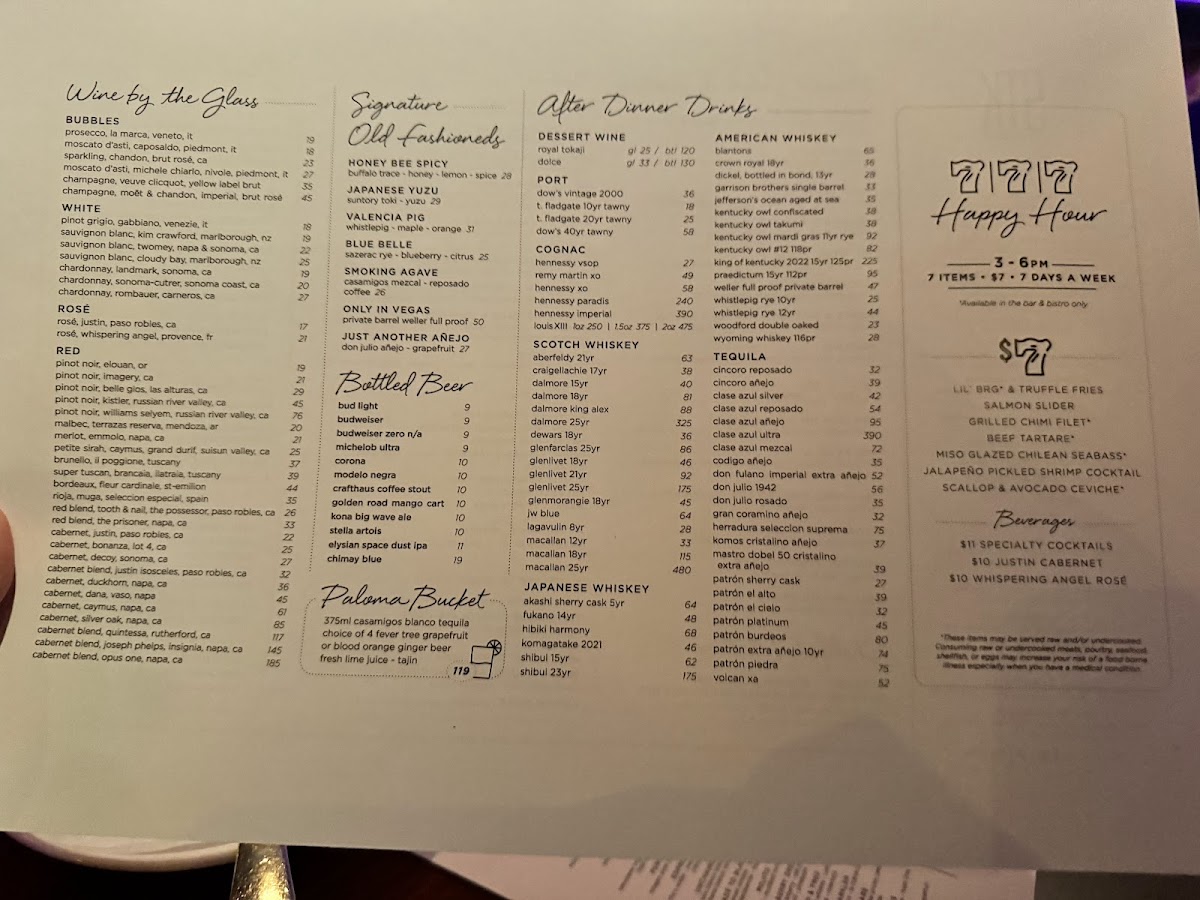 Wine by the Glass
BUBBLES
prosecco, la marca, veneto, it 19
moscato d'asti, caposaldo, piedmont, it 18
sparkling, chandon, brut rosé, ca 23
moscato d'asti, michele chiarlo, nivole, piedmont, it 27
champagne, veuve clicquot, yellow label brut 35
champagne, moët & chandon, imperial, brut rosé 45
WHITE
pinot grigio, gabbiano, venezie, it 18
sauvignon blanc, kim crawford, marlborough, nz 19
sauvignon blanc, twomey, napa & sonoma, ca 22
sauvignon blanc, cloudy bay, marlborough, nz 25
chardonnay, landmark, sonoma, ca 19
chardonnay, sonoma-cutrer, sonoma coast, ca 20
chardonnay, rombauer, carneros, ca 27
ROSÉ
rosé, justin, paso robles, ca 17
rosé, whispering angel, provence, fr 21
RED
pinot noir, elouan, or 19
pinot noir, imagery, ca 21
pinot noir, belle glos, las alturas, ca 29
pinot noir, kistler, russian river valley, ca 45
pinot noir, williams selyem, russian river valley, ca 76
malbec, terrazas reserva, mendoza, ar 20
merlot, emmolo, napa, ca 21
petite sirah, caymus, grand durif, suisun valley, ca 25
brunello, il poggione, tuscany 37
super tuscan, brancaia, ilatraia, tuscany 39
bordeaux, fleur cardinale, st-emilion 44
rioja, muga, seleccion especial, spain 35
red blend, tooth & nail, the possessor, paso robles, ca 26
red blend, the prisoner, napa, ca 33
cabernet, justin, paso robles, ca 22
cabernet, bonanza, lot 4, ca 25
cabernet, decoy, sonoma, ca 27
cabernet blend, justin isosceles, paso robles, ca 32
cabernet, duckhorn, napa, ca 36
cabernet, dana, vaso, napa 45
cabernet, caymus, napa, ca 61
cabernet, silver oak, napa, ca 85
cabernet blend, quintessa, rutherford, ca 117
cabernet blend, joseph phelps, insignia, napa, ca 145
cabernet blend, opus one, napa, ca 185
Signature
Old Fashioneds
HONEY BEE SPICY
buffalo trace - honey - lemon - spice 28
JAPANESE YUZU
suntory toki - yuzu 29
VALENCIA PIG
whistlepig - maple - orange 31
BLUE BELLE
sazerac rye - blueberry - citrus 25
SMOKING AGAVE
casamigos mezcal - reposado
coffee 26
ONLY IN VEGAS
private barrel weller full proof 50
JUST ANOTHER AÑEJO
don julio añejo - grapefruit 27
Bottled Beer
bud light 9
budweiser 9
budweiser zero n/a 9
michelob ultra 9
corona 10
modelo negra 10
crafthaus coffee stout 10
golden road mango cart 10
kona big wave ale 10
stella artois 10
elysian space dust ipa 11
chimay blue 19
Paloma Bucket
375ml casamigos blanco tequila
choice of 4 fever tree grapefruit
or blood orange ginger beer
fresh lime juice - tajin
119
After Dinner Drinks
DESSERT WINE
royal tokaji gl 25 / btl 120
dolce gl 33 / btl 130
PORT
dow's vintage 2000 36
t. fladgate 10yr tawny 18
t. fladgate 20yr tawny 25
dow's 40yr tawny 58
COGNAC
hennessy vsop 27
remy martin xo 49
hennessy xo 58
hennessy paradis 240
hennessy imperial 390
louis XIII 1oz 250 | 1.5oz 375 | 2oz 475
SCOTCH WHISKEY
aberfeldy 21yr 63
craigellachie 17yr 38
dalmore 15yr 40
dalmore 18yr 81
dalmore king alex 88
dalmore 25yr 325
dewars 18yr 36
glenfarclas 25yr 86
glenlivet 18yr 46
glenlivet 21yr 92
glenlivet 25yr 175
glenmorangie 18yr 45
jw blue 64
lagavulin 8yr 28
macallan 12yr 33
macallan 18yr 115
macallan 25yr 480
JAPANESE WHISKEY
akashi sherry cask 5yr 64
fukano 14yr 48
hibiki harmony 68
komagatake 2021 46
shibui 15yr 62
shibui 23yr 175
AMERICAN WHISKEY
blantons 65
crown royal 18yr 36
dickel, bottled in bond, 13yr 28
garrison brothers single barrel 33
jefferson's ocean aged at sea 35
kentucky owl confiscated 38
kentucky owl takumi 38
kentucky owl mardi gras 11yr rye 92
kentucky owl #12 118pr 82
king of kentucky 2022 15yr 125pr 225
praedictum 15yr 112pr 95
weller full proof private barrel 47
whistlepig rye 10yr 25
whistlepig rye 12yr 44
woodford double oaked 23
wyoming whiskey 116pr 28
TEQUILA
cincoro reposado 32
cincoro añejo 39
clase azul silver 42
clase azul reposado 54
clase azul añejo 95
clase azul ultra 390
clase azul mezcal 72
codigo añejo 35
don fulano imperial extra añejo 52
don julio 1942 56
don julio rosado 35
gran coramino añejo 32
herradura seleccion suprema 75
komos cristalino añejo 37
mastro dobel 50 cristalino
extra añejo 39
patrón sherry cask 27
patrón el alto 39
patrón el cielo 32
patrón platinum 45
patrón burdeos 80
patrón extra añejo 10yr 74
patrón piedra 75
volcan xa 52
7|7|7
Happy Hour
3 - 6PM
7 ITEMS • $7 • 7 DAYS A WEEK
*Available in the bar & bistro only
$7
LIL' BRG* & TRUFFLE FRIES
SALMON SLIDER
GRILLED CHIMI FILET*
BEEF TARTARE*
MISO GLAZED CHILEAN SEABASS*
JALAPEÑO PICKLED SHRIMP COCKTAIL
SCALLOP & AVOCADO CEVICHE*
Beverages
$11 SPECIALTY COCKTAILS
$10 JUSTIN CABERNET
$10 WHISPERING ANGEL ROSÉ
*These items may be served raw and/or undercooked.
Consuming raw or undercooked meats, poultry, seafood,
shellfish, or eggs may increase your risk of a food borne
illness especially when you have a medical condition.